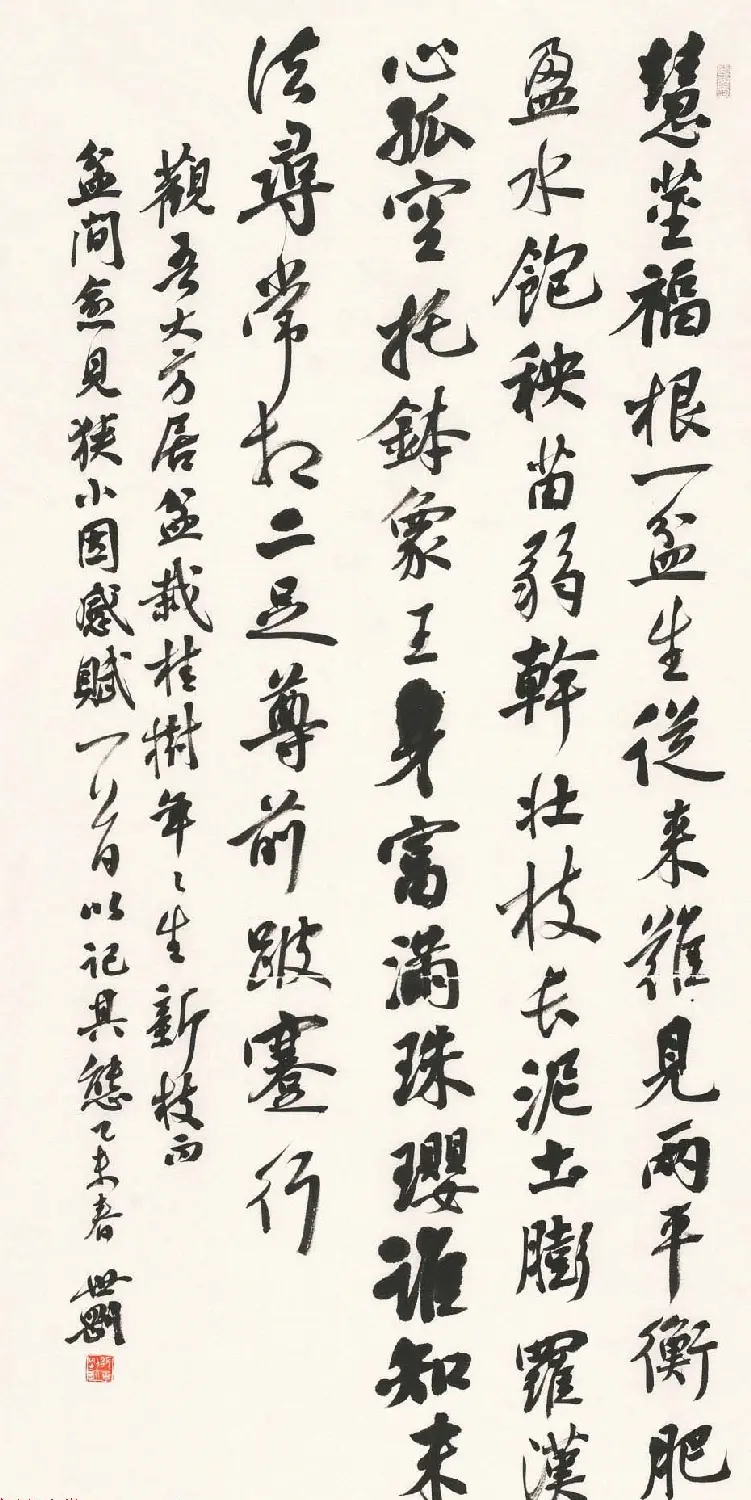 慧莖福根一盆生從来難見兩平衡肥
盈水飽秧苗弱幹壯枝长泥土膨羅漢
心孤空托鉢象王身富满珠瓔誰知末
法尋常相二足尊前跛蹇行
觀吾大方居盆栽桂樹年々生新枝而
盆间愈見狭小因感賦一首以记其態乙未春
世剛